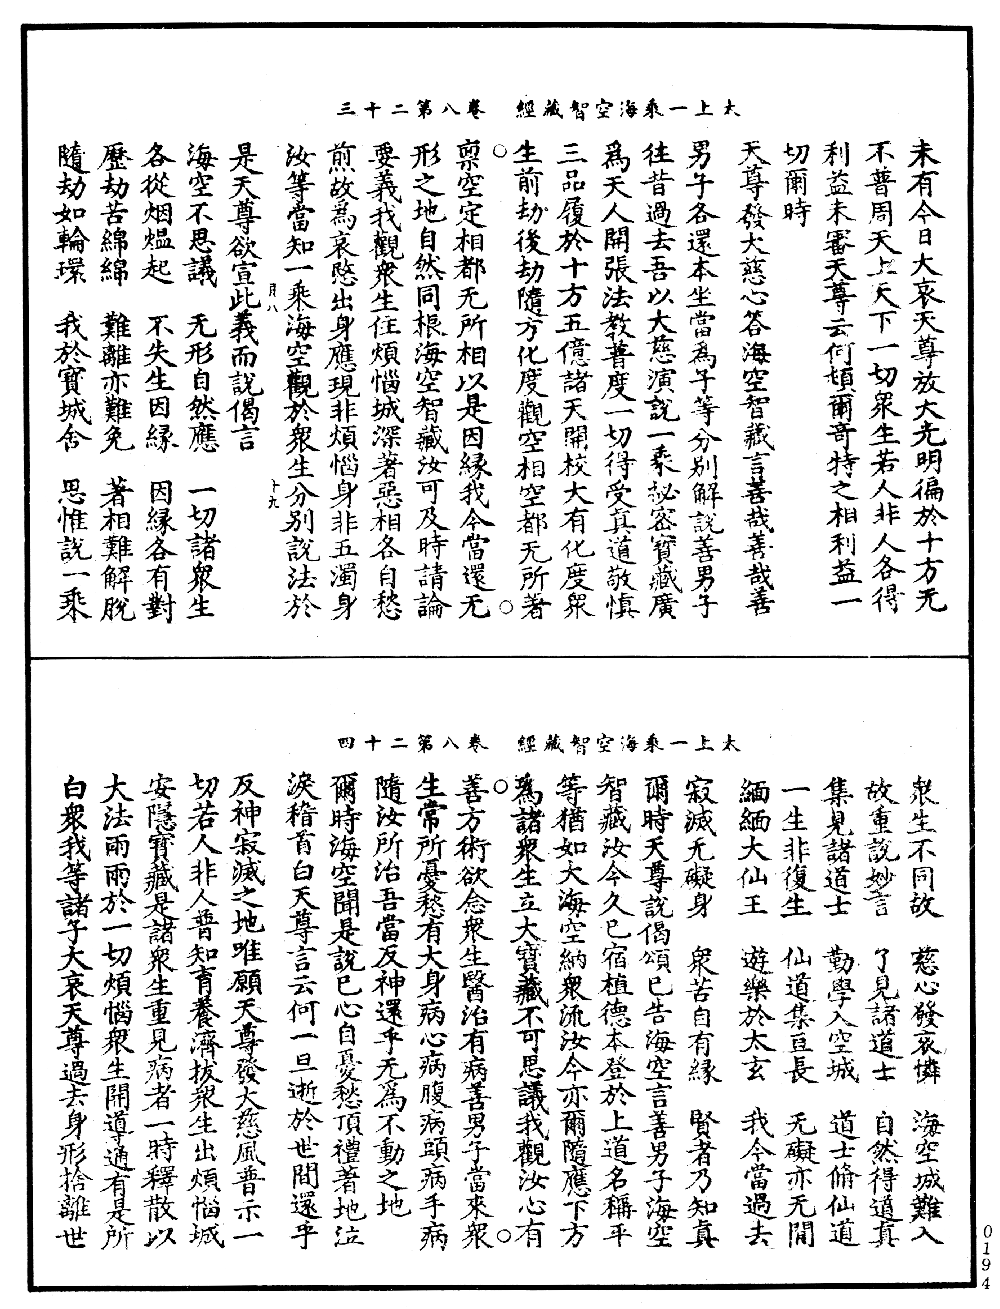 太上一乘海空智藏經　卷八第二十三
未有今日大哀天尊放大光明徧於十方无
不普周天上天下一切衆生若人非人各得
利益未審天尊云何頓爾奇特之相利益一
切爾時
天尊發大慈心答海空智藏言善哉善哉善
男子各還本坐當爲子等分别解說善男子
往昔過去吾以大慈演說一乘祕密寶藏廣
爲天人開張法教普度一切得受真道敬慎
三品履於十方五億諸天開校大有化度衆
生前劫後劫隨方化度觀空相空都无所著
稟空定相都无所相以是因緣我今當還无
形之地自然同根海空智藏汝可及時請論
要義我觀衆生住煩惱城深著惡相各自愁
煎故爲哀愍出身應現非煩惱身非五濁身
汝等當知一乘海空觀於衆生分别說法於
月八　十九
是天尊欲宣此義而說偈言
海空不思議　无形自然應　一切諸衆生
各從烟熅起　不失生因緣　因緣各有對
歷劫苦綿綿　難離亦難免　著相難解脫
隨劫如輪環　我於寶城舍　思惟說一乘
太上一乘海空智藏經　卷八第二十四
衆生不同故　慈心發哀憐　海空城難入
故重說妙言　了見諸道士　自然得道真
集見諸道士　勤學入空城　道士脩仙道
一生非復生　仙道集亘長　无礙亦无閒
緬緬大仙王　遊樂於太玄　我今當過去
寂滅无礙身　衆苦自有緣　賢者乃知真
爾時天尊說偈頌已告海空言善男子海空
智藏汝今久已宿植德本登於上道名稱平
等猶如大海空納衆流汝今亦爾隨應下方
爲諸衆生立大寶藏不可思議我觀汝心有
善方術欲念衆生醫治有病善男子當來衆
生常所憂愁有大身病心病腹病頭病手病
隨汝所治吾當反神還乎无爲不動之地
爾時海空聞是說已心自憂愁頂禮著地泣
淚稽首白天尊言云何一旦逝於世間還乎
反神寂滅之地唯願天尊發大慈風普示一
切若人非人普知育養濟拔衆生出煩惱城
安隱寶藏是諸衆生重見病者一時釋散以
大法雨雨於一切煩惱衆生開導通有是所
白衆我等諸子大哀天尊過去身形捨離世
0194